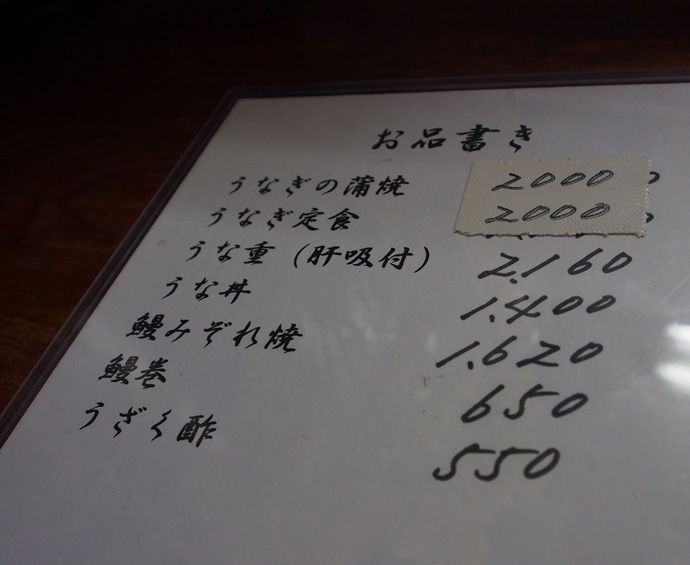 お品書き
うなぎの蒲焼 2000
うなぎ定食 2000
うな重（肝吸付） 2.160
うな丼 1.400
鰻みぞれ焼 1.620
鰻巻 650
うざく酢 550